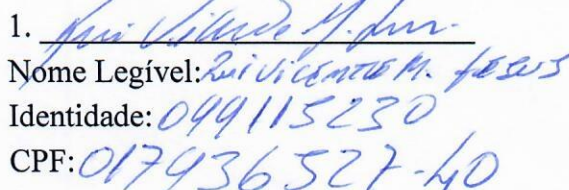 1.
Nome Legível: Rui Vicente M. Jesus
Identidade: 099115230
CPF: 017936527-40